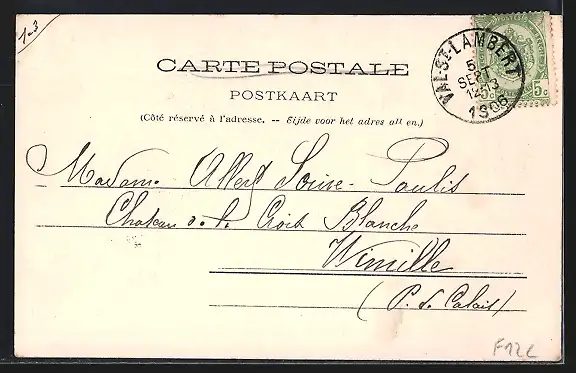 1-3
CARTE POSTALE
POSTKAART
(Côté réservé à l'adresse. -- Zijde voor het adres all en.)
VAL-ST-LAMBERT
5
SEPT
12-13
1906
5c
Madame Albert Soire-Paulis
Chateau de la Croix Blanche
Wimille
(P. de Calais)